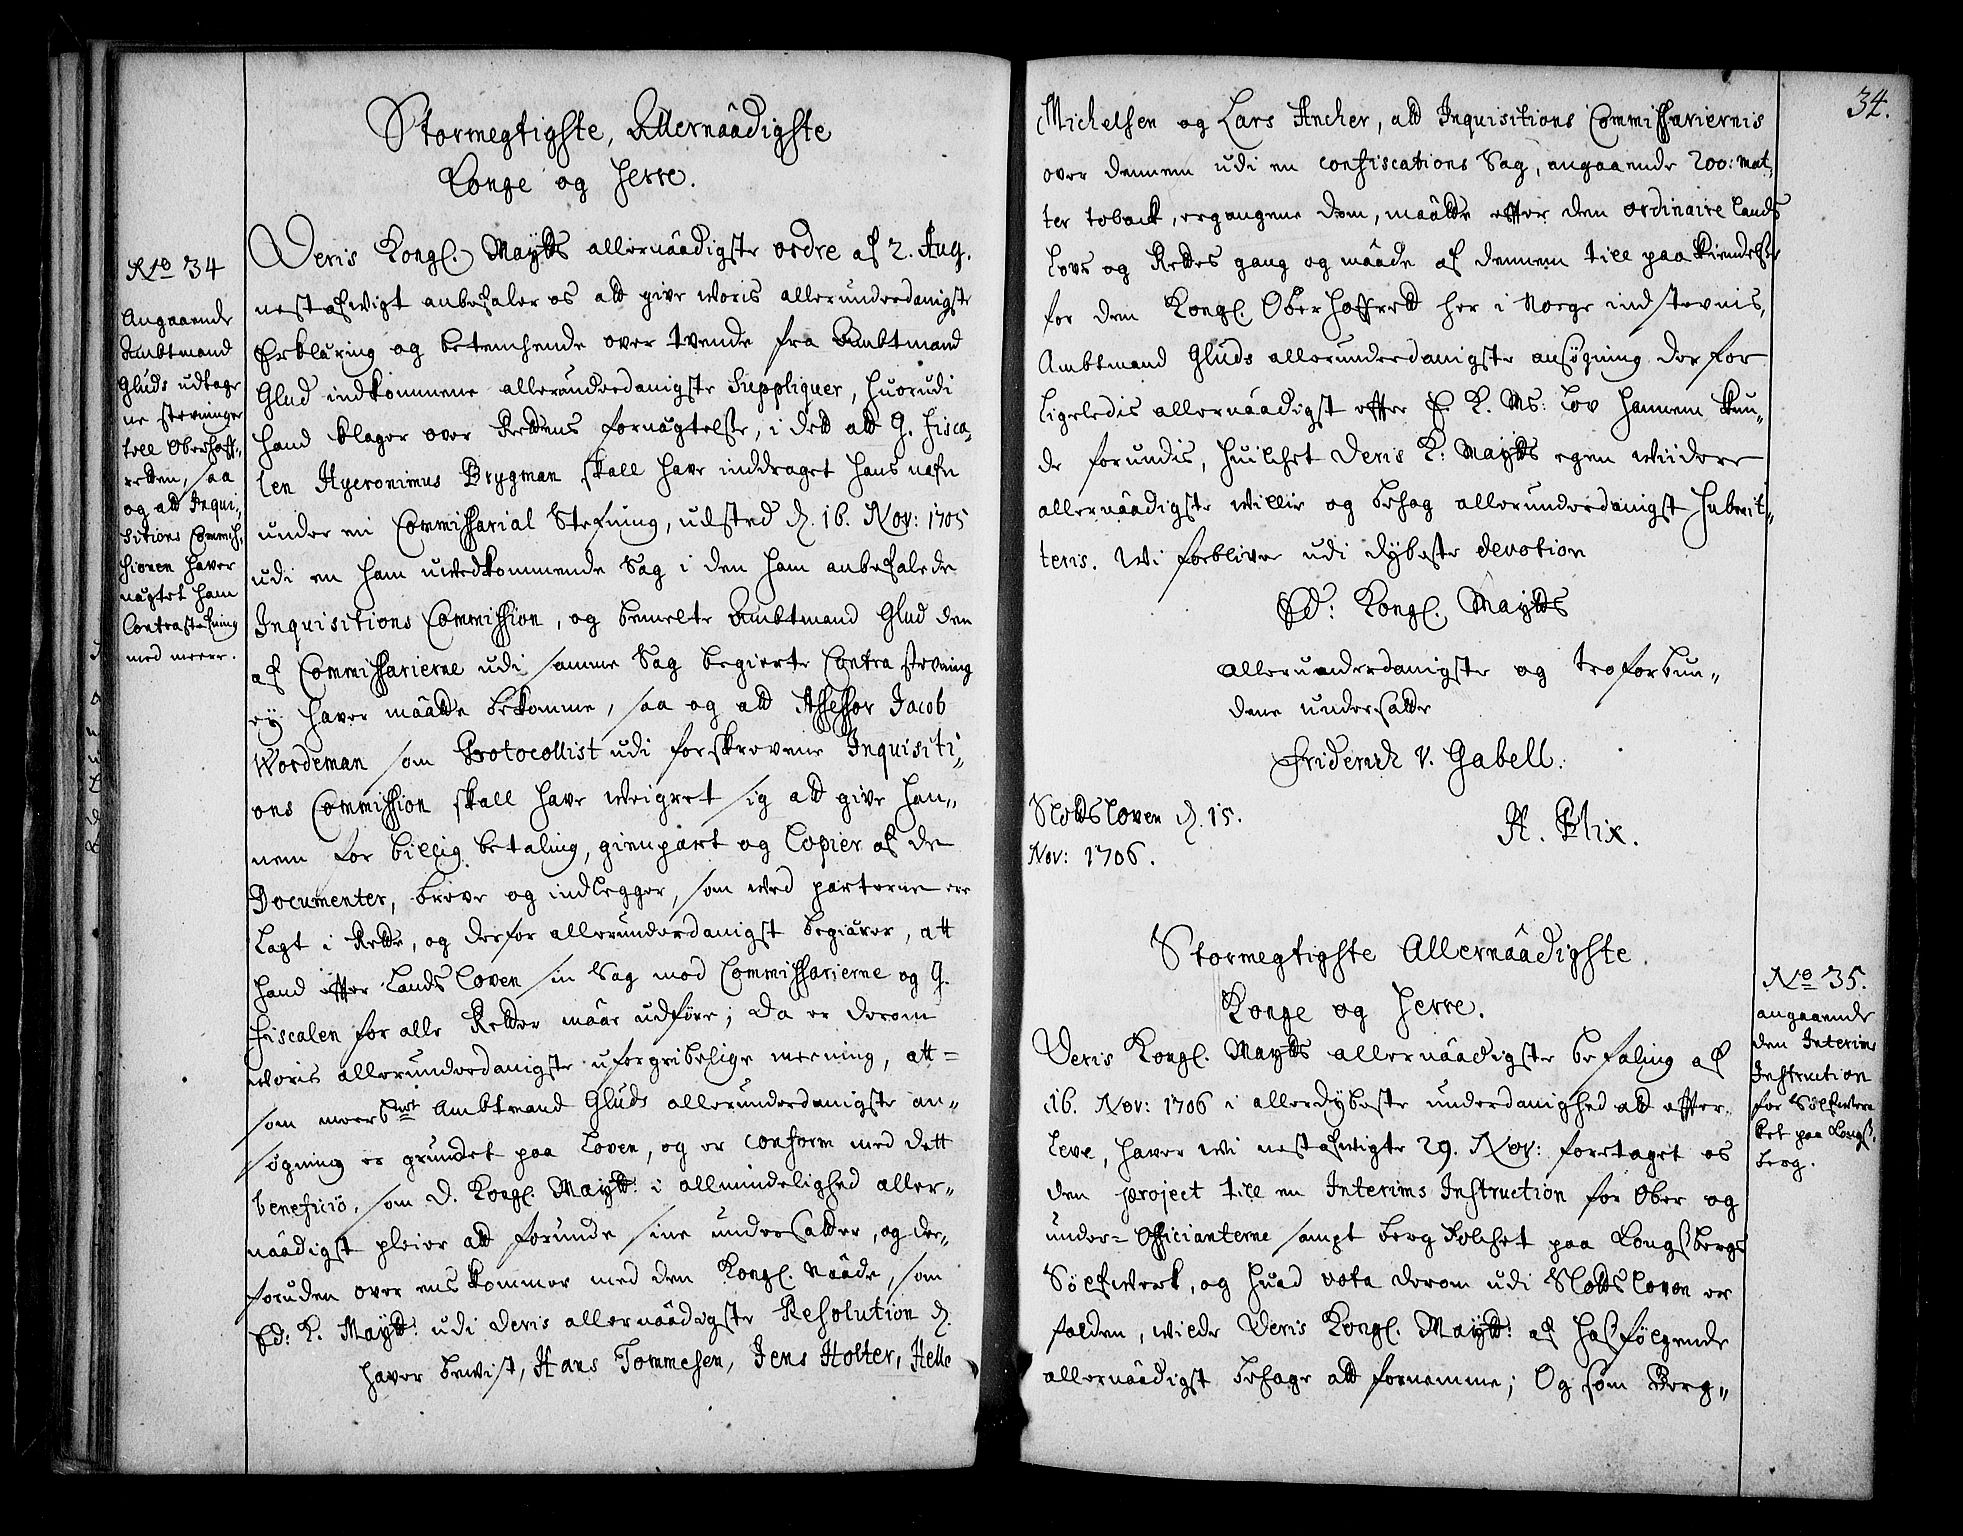 Stormegtigste, Allernaadigste
Konge og Herre.
No 34
Angaaende
Ambtmand
Gluds udtage
ne stevninger
till Oberhoff-
retten, saa
og att Inqui-
sitions Commis-
sionen haver
nægtet ham
Contrastefning
med meere.
Deris Kongl. Maytts allernaadigste ordre af 2. Aug.
nest afwigt anbefaler os att give woris allerunderdanigste
Erklæring og betenchende over tvende fra Ambtmand
Glud indkommene allerunderdanigste Suppliquer, huorudi
hand klager over Rettens fornægtelse, i dett att G. Fisca-
len Hyeronimus Brygman skall have inddraget hans nafn
under en Commissarial Stefning, udsted d. 16. Nov: 1705
udi en ham uvedkommende Sag i den ham anbefalede
Inquisitions Commission, og bemelte Ambtmand Glud den
af Commissarierne udi samme Sag begierte Contra stevning
ey haver maatte bekomme, saa og att Assessor Jacob
Wordeman som Protocollist udi forskrevene Inquisiti-
ons Commission skall have weigret sig att give han-
nem for billig betaling, gienpart og Copier af de
Documenter, breve og indlegger, som wed parterne ere
lagt i Rette, og derfor allerunderdanigst begiærer, att
hand effter Lands Loven sin Sag mod Commissarierne og G.
Fiscalen for alle Retter maae udføre; Da er derom
woris allerunderdanigste uforgribelige meening, att-
som meerbmt Ambtmand Gluds allerunderdanigste an-
søgning er grundet paa Loven, og er conform med dett
beneficio, som D. Kongl. Maytt: i allmindelighed aller-
naadigst pleier att forunde sine undersatter, og der-
foruden over ens kommer med den Kongl. naade, som
Ed: K. Maytt: udi deris allernaadigste Resolution d.
haver bewist, Hans Tommesen, Jens Holter, Helle
34.
Michelsen og Lars Ancher, att Inquisitions Commissariernis
over dennem udi en confiscations Sag, angaaende 200: mat-
ter toback, ergangene dom, maatte effter den ordinaire Lands
Lovs og Rettes gang og maade af dennem till paa kiendelse
for den Kongl. Oberhoffrett her i Norge indstevnis,
Ambtmand Gluds allerunderdanigste ansøgning derfor
ligeledis allernaadigst effter E. K. Ms: Lov hannem kun-
de forundis, huilchet Deris K: Maytts egen widere
allernaadigste willie og behag allerunderdanigst submit-
teris. Wi forblive udi dybeste devotion
Ed: Kongl. Maytts
allerunderdanigste og troforbun-
dene undersatte
Friderich v. Gabell.
Slottsloven d. 15.
Nov: 1706.
H. Blix.
Stormegtigste Allernaadigste
Konge og Herre.
No 35.
angaaende
den Interims
Instruction
for Sølfwer-
ket paa Kongs-
berg.
Deris Kongl. Maytts allernaadigste befaling af
16. Nov: 1706 i allerdybeste underdanighed att effter-
leve, haver wi nest afwigte 29. Nov: foretaget os
den project till en Interims Instruction for Ober og
under-Officianterne sampt Berg Folchet paa Kongsbergs
Sølfwerk, og huad vota derom udi Slotts loven er
falden, wilde Deris Kongl. Maytt: af hosfølgende
allernaadigst behage att fornemme; Og som Berg-